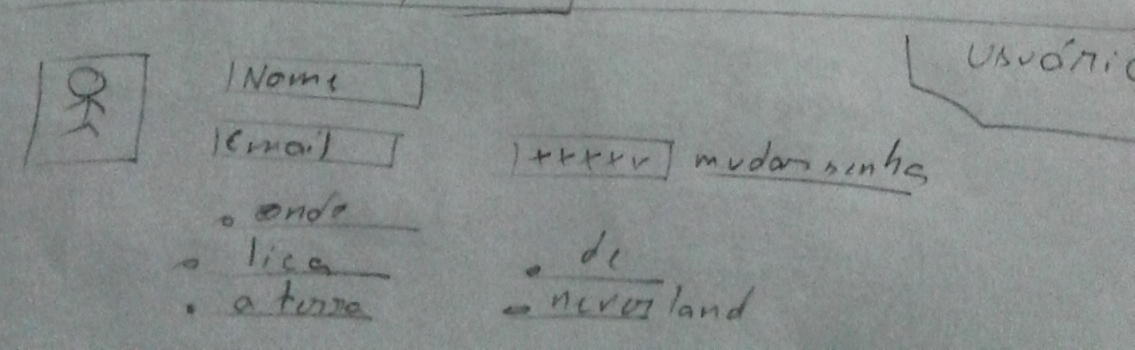 Usuári
Nome
Email
xxxxx mudar senha
onde
fica
de
a terra
neverland